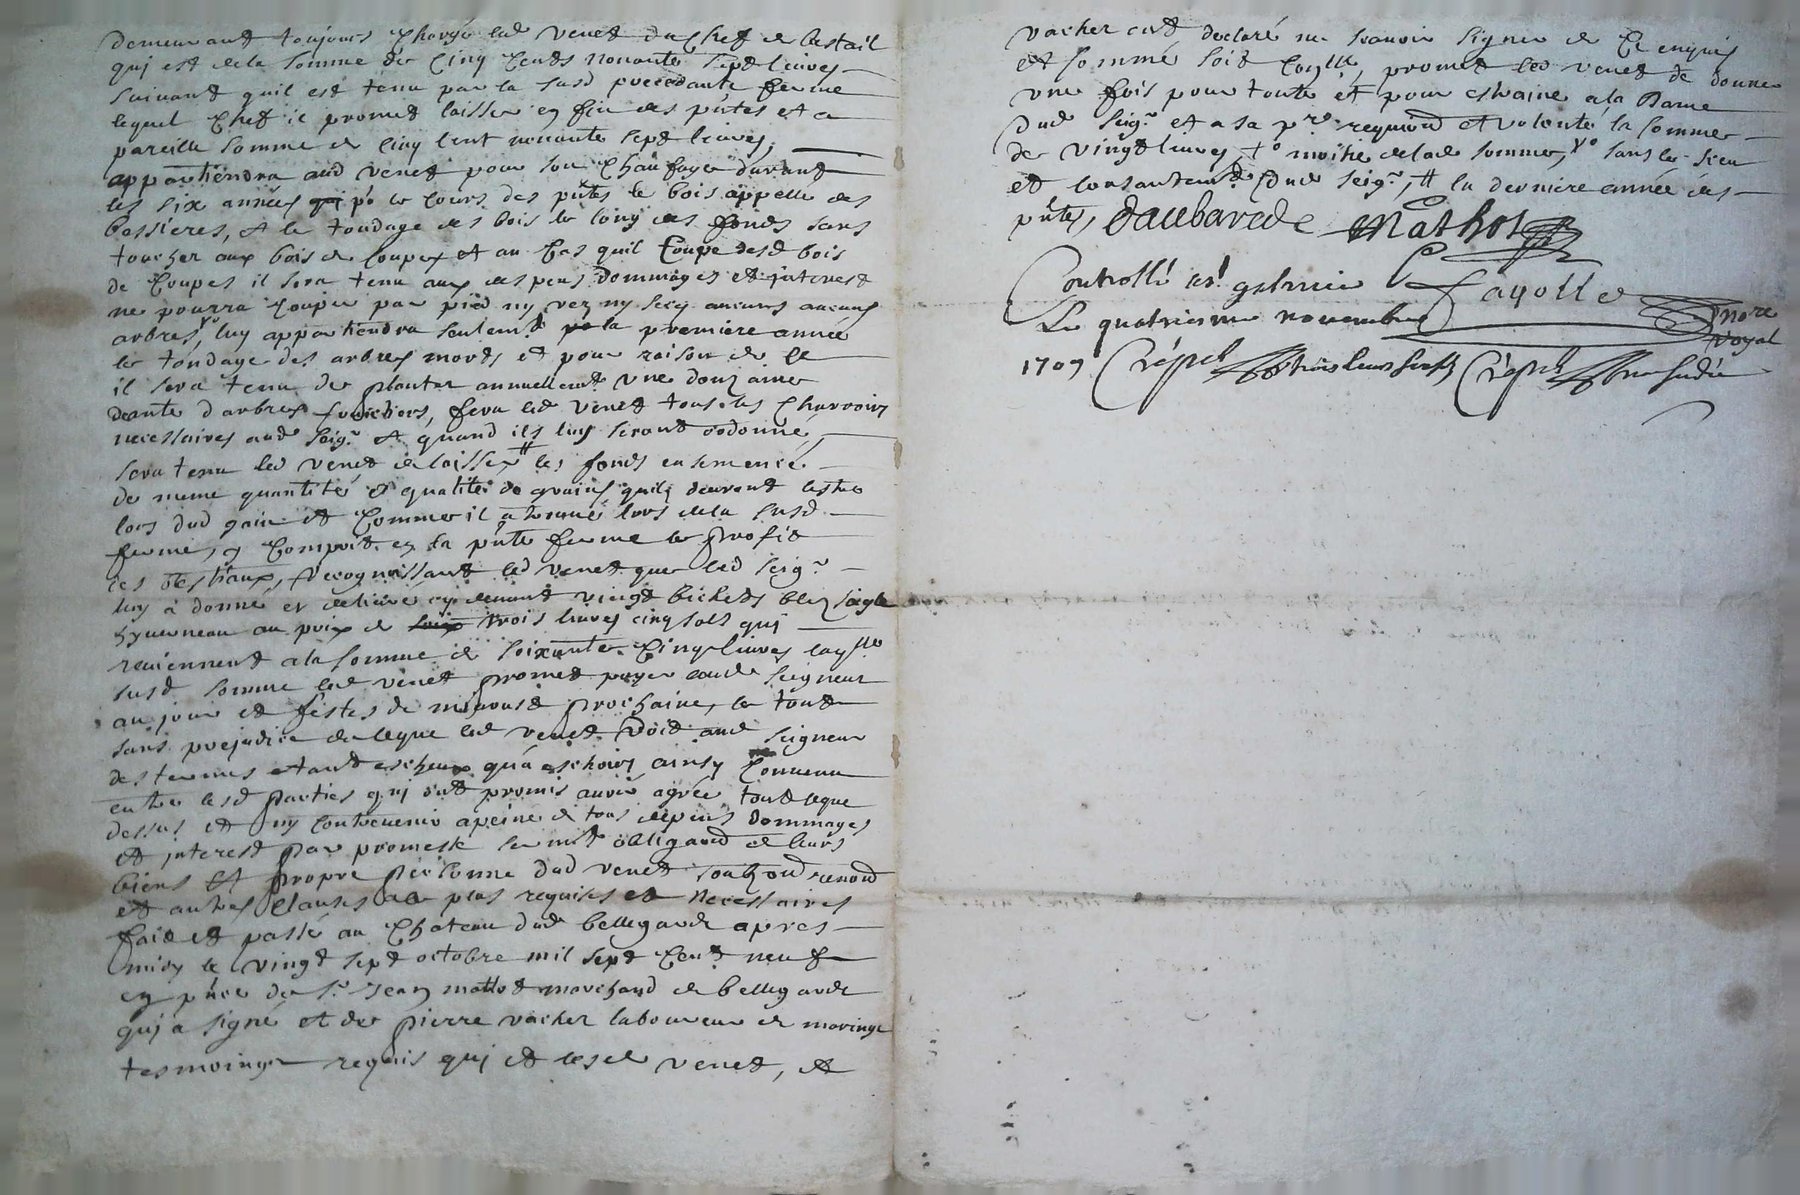 demeurant toujours chargé led venet du chef de bestail
qui est de la somme de cinq cents nonante sept livres
suivant quil est tenu par la susd precedante ferme
lequel chef il promet laisser en fin des pñtes et a
pareille somme de cinq cent nonante sept livres,
appartiendra aud venet pour son chauffage durant
les six années po le cours des pñtes le bois appellé des
bessieres, et le tondage des bois le long des fonds sans
toucher aux bois de coupes et au cas quil coupe desd bois
de coupes il sera tenu aux despens dommages et interest
ne pourra couper par pied ny vez ny secq aucuns
arbres, luy appartiendra seulemt la premiere année
le tondage des arbres morts et pour raison de ce
il sera tenu de planter annuellemt une douzaine
dante darbres fruictiers, fera led venet tous les charrois
necessaires aud seigr et quand ils luy seront ordonné,
sera tenu led venet de laisser les fonds ensemencé
de meme quantité et qualité de grains quils devront estre
lors dud et comme il a trouvé lors de la susd
ferme, compris en la pñte ferme le profit
des bestiaux, recognoissant led venet que led seigr
luy a donné et delivré cy devant vingt bichets bled seigle
au prix de trois livres cinq sols qui
reviennent a la somme de soixante cinq livres laqlle
susd somme led venet promet payer aud seigneur
au jour et festes de my aoust prochaine, le tout
sans prejudice de ceque led venet doit aud seigneur
des termes et ant escheux qua eschoir ainsy convenu
entre lesd parties qui ont promis avoir agrée tout ceque
dessus et ny contrevenir a peine de tous depens dommages
et interest par promesse sermt obligaon de leurs
biens et propre personne dud venet renon
et autres clauses a ce plus requises et necessaires
fait et passé au chateau dud bellegarde apres
midy le vingt sept octobre mil sept cent neuf
en pñce de sr Jean mathot marchand de bellegarde
qui a signé et de pierre vacher laboureur de maringe
tesmoings requis qui et lesd venet, et
vacher ont declaré ne scavoir signer de ce enquis
et sommé soit coñllé, promet led venet de donner
une fois pour toute et pour estraine a la Dame
dud seigr et a sa pre requion et volonté la somme
de vingt livres moitié de lad somme, sans le sceu
et consantemt dud seigr, la derniere année des
pñtes, Daubarede Mathot
Controllé a st galmier Fayolle
Le quatriesme novembre nore
royal
1709 Crépet Crépet